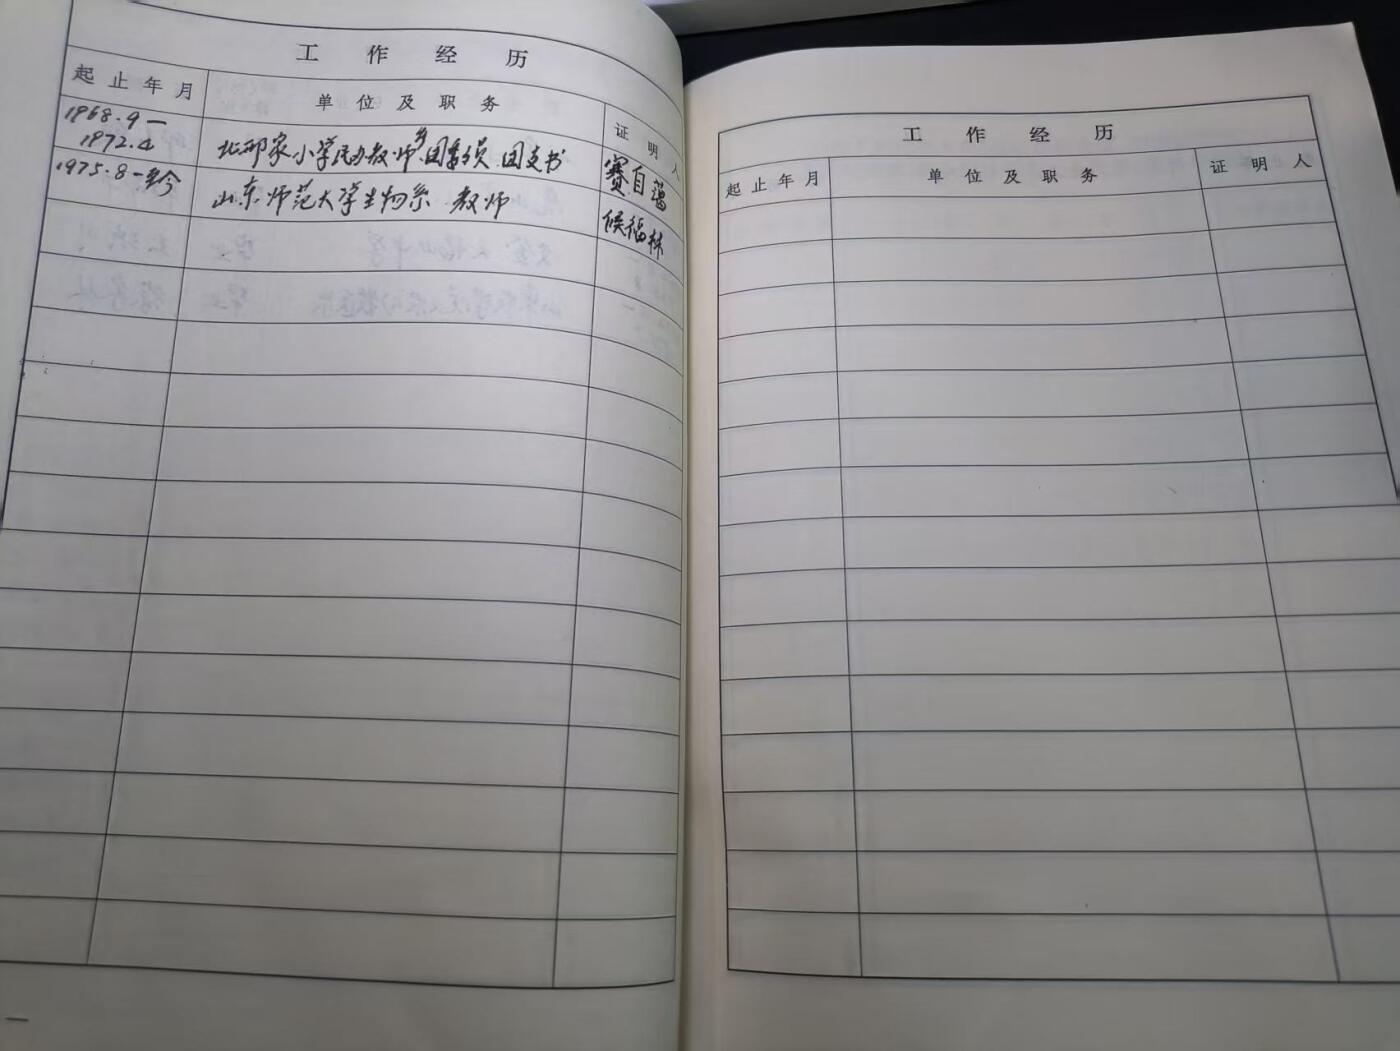 工作经历
起止年月 单位及职务 证明人
1968.9—
1972.4 北邢家小学民办教师、乡团委员、团支书 赛自蔼
1975.8—至今 山东师范大学生物系 教师 候福林
工作经历
起止年月 单位及职务 证明人